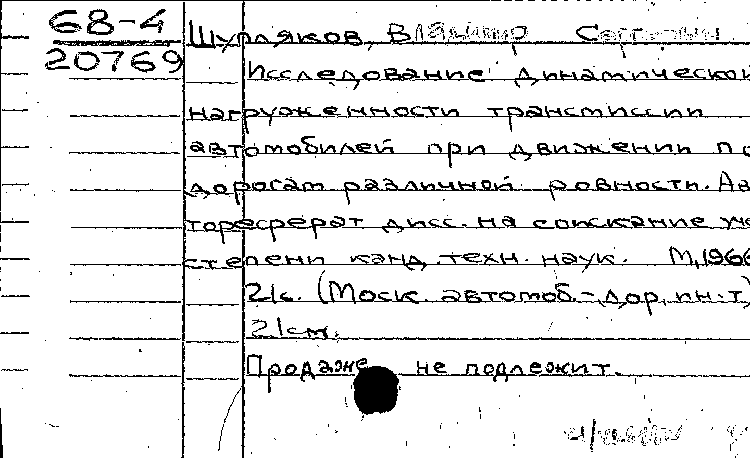 68-4
20769
Шупляков, Владимир
Исследование динамической
нагруженности трансмиссии
автомобилей при движении по
дорогам различной ровности. Ав
тореферат дисс. на соискание уче
степени канд. техн. наук. М, 1966
21с. (Моск. автомоб.-дор, ин-т)
21см.
Продаже не подлежит.